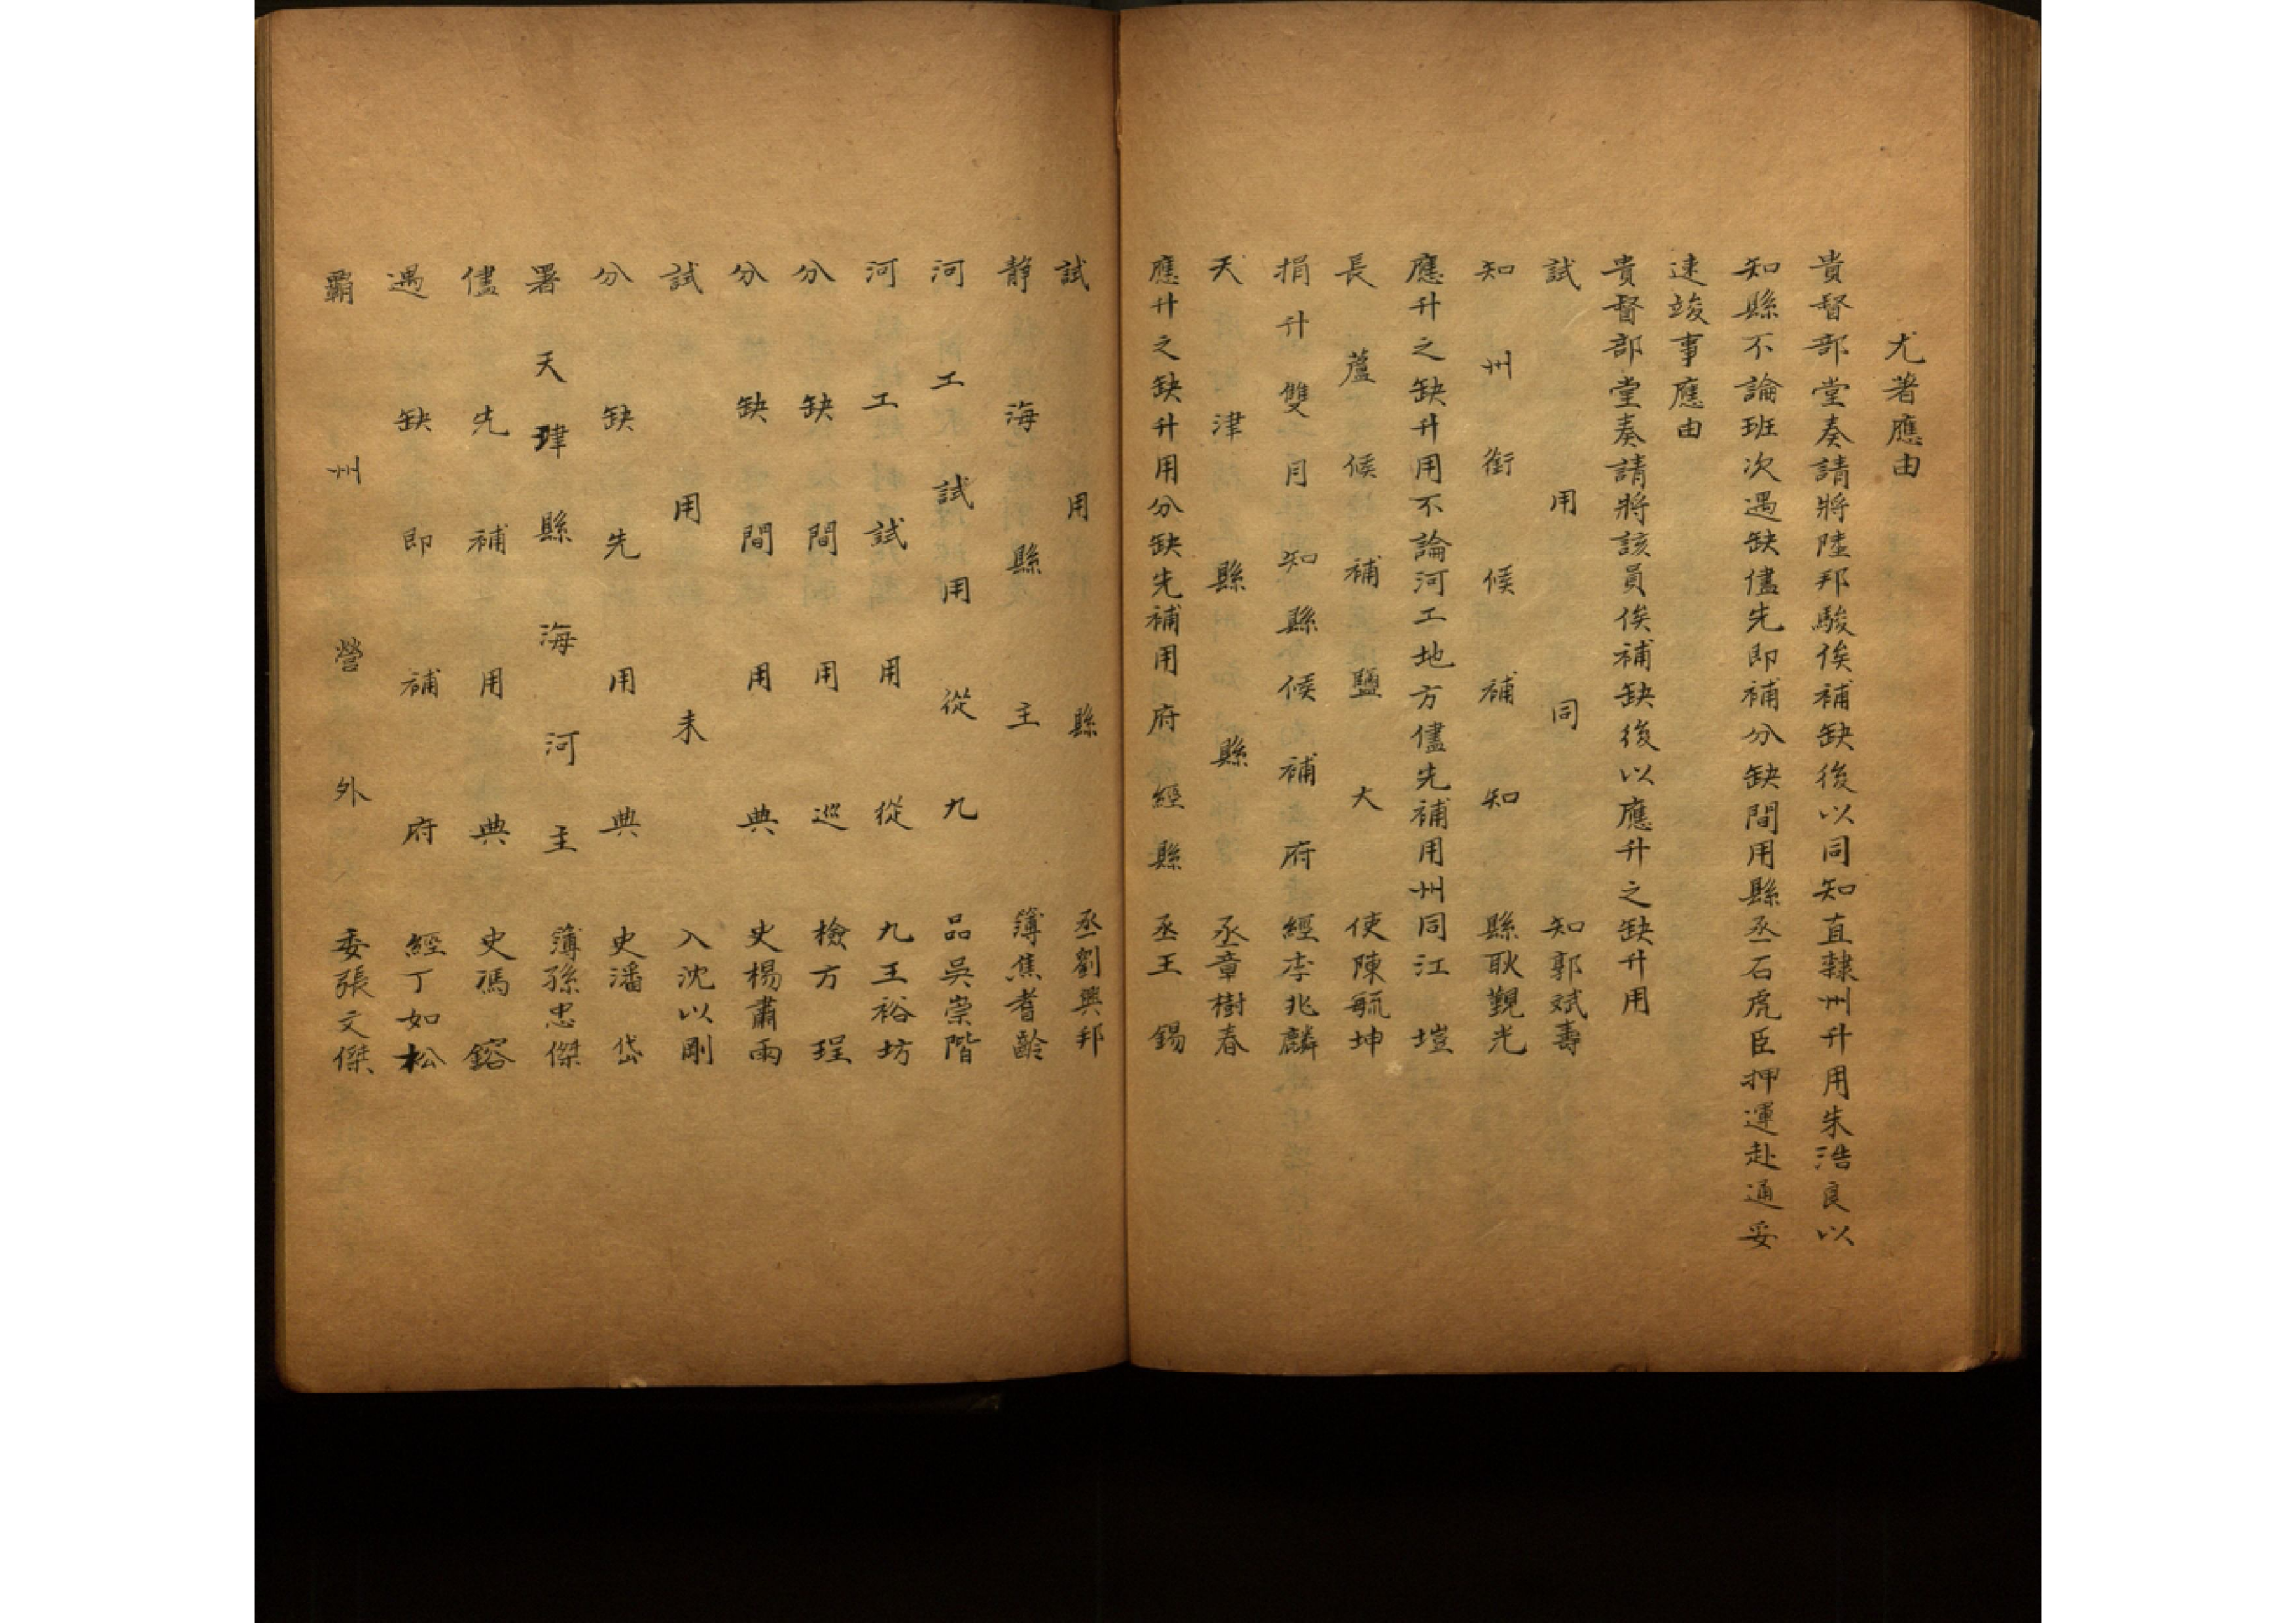 尤著應由
貴督部堂奏請將陸邦駿俟補缺後以同知直隸州升用朱浩良以
知縣不論班次遇缺儘先即補分缺間用縣丞石虎臣押運赴通妥
速竣事應由
貴督部堂奏請將該員俟補缺後以應升之缺升用
試用同知郭斌壽
知州銜候補知縣耿觀光
應升之缺升用不論河工地方儘先補用州同江塏
長蘆候補鹽大使陳毓坤
捐升雙月知縣候補府經李兆麟
天津縣縣丞章樹春
應升之缺升用分缺先補用府經縣丞王錫
試用縣丞劉興邦
靜海縣主簿焦耆齡
河工試用從九品吳崇階
河工試用從九王裕坊
分缺間用巡檢方珵
分缺間用典史楊肅雨
試用未入沈以剛
分缺先用典史潘岱
署天津縣海河主簿孫忠傑
儘先補用典史馮鎔
遇缺即補府經丁如松
霸州營外委張文傑